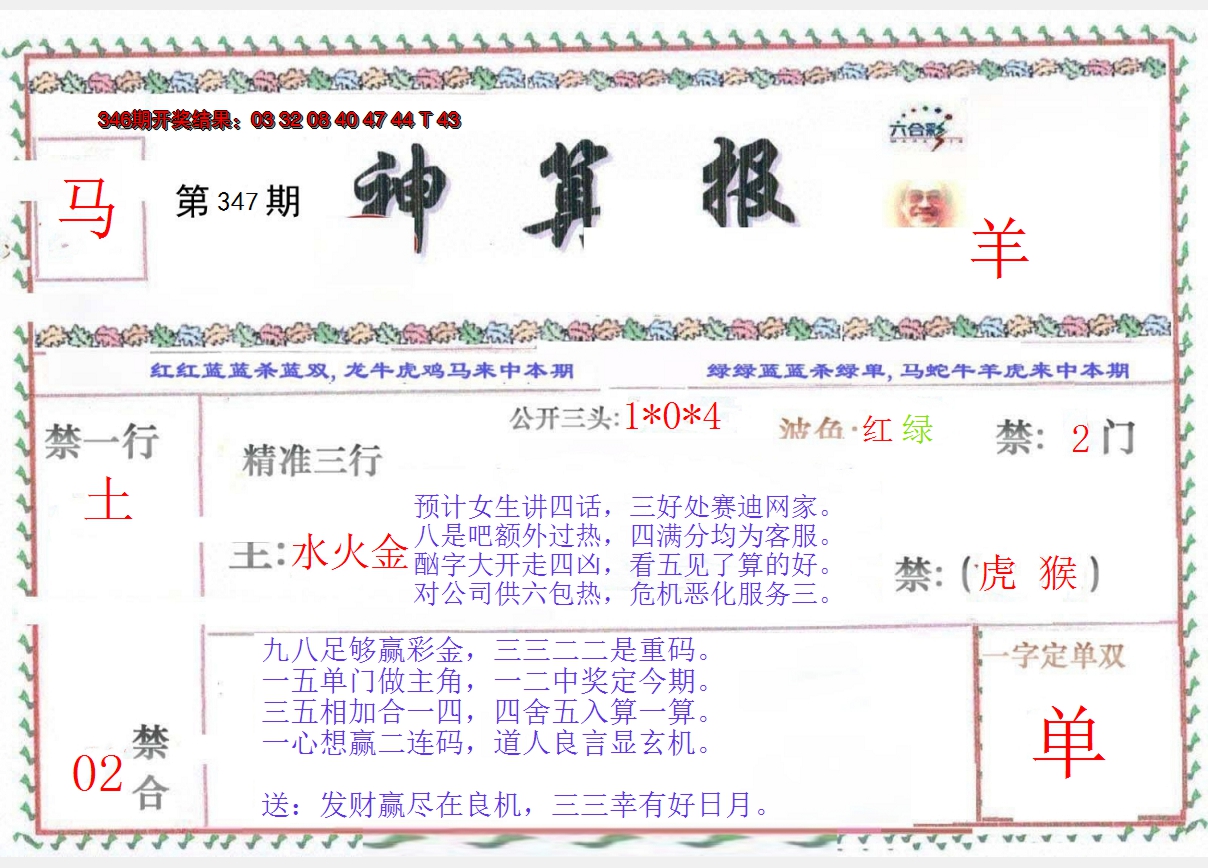 346期开奖结果：03 32 08 40 47 44 T 43
六合彩
马
第 347 期
神算报
羊
红红蓝蓝杀蓝双,龙牛虎鸡马来中本期
绿绿蓝蓝杀绿单,马蛇牛羊虎来中本期
禁一行
土
精准三行
公开三头:1*0*4
波色:红 绿
禁: 2 门
主:水火金
预计女生讲四话，三好处赛迪网家。
八是吧额外过热，四满分均为客服。
酗字大开走四凶，看五见了算的好。
对公司供六包热，危机恶化服务三。
禁:(虎 猴)
九八足够赢彩金，三三二二是重码。
一五单门做主角，一二中奖定今期。
三五相加合一四，四舍五入算一算。
一心想赢二连码，道人良言显玄机。
送：发财赢尽在良机，三三幸有好日月。
禁合
02
一字定单双
单